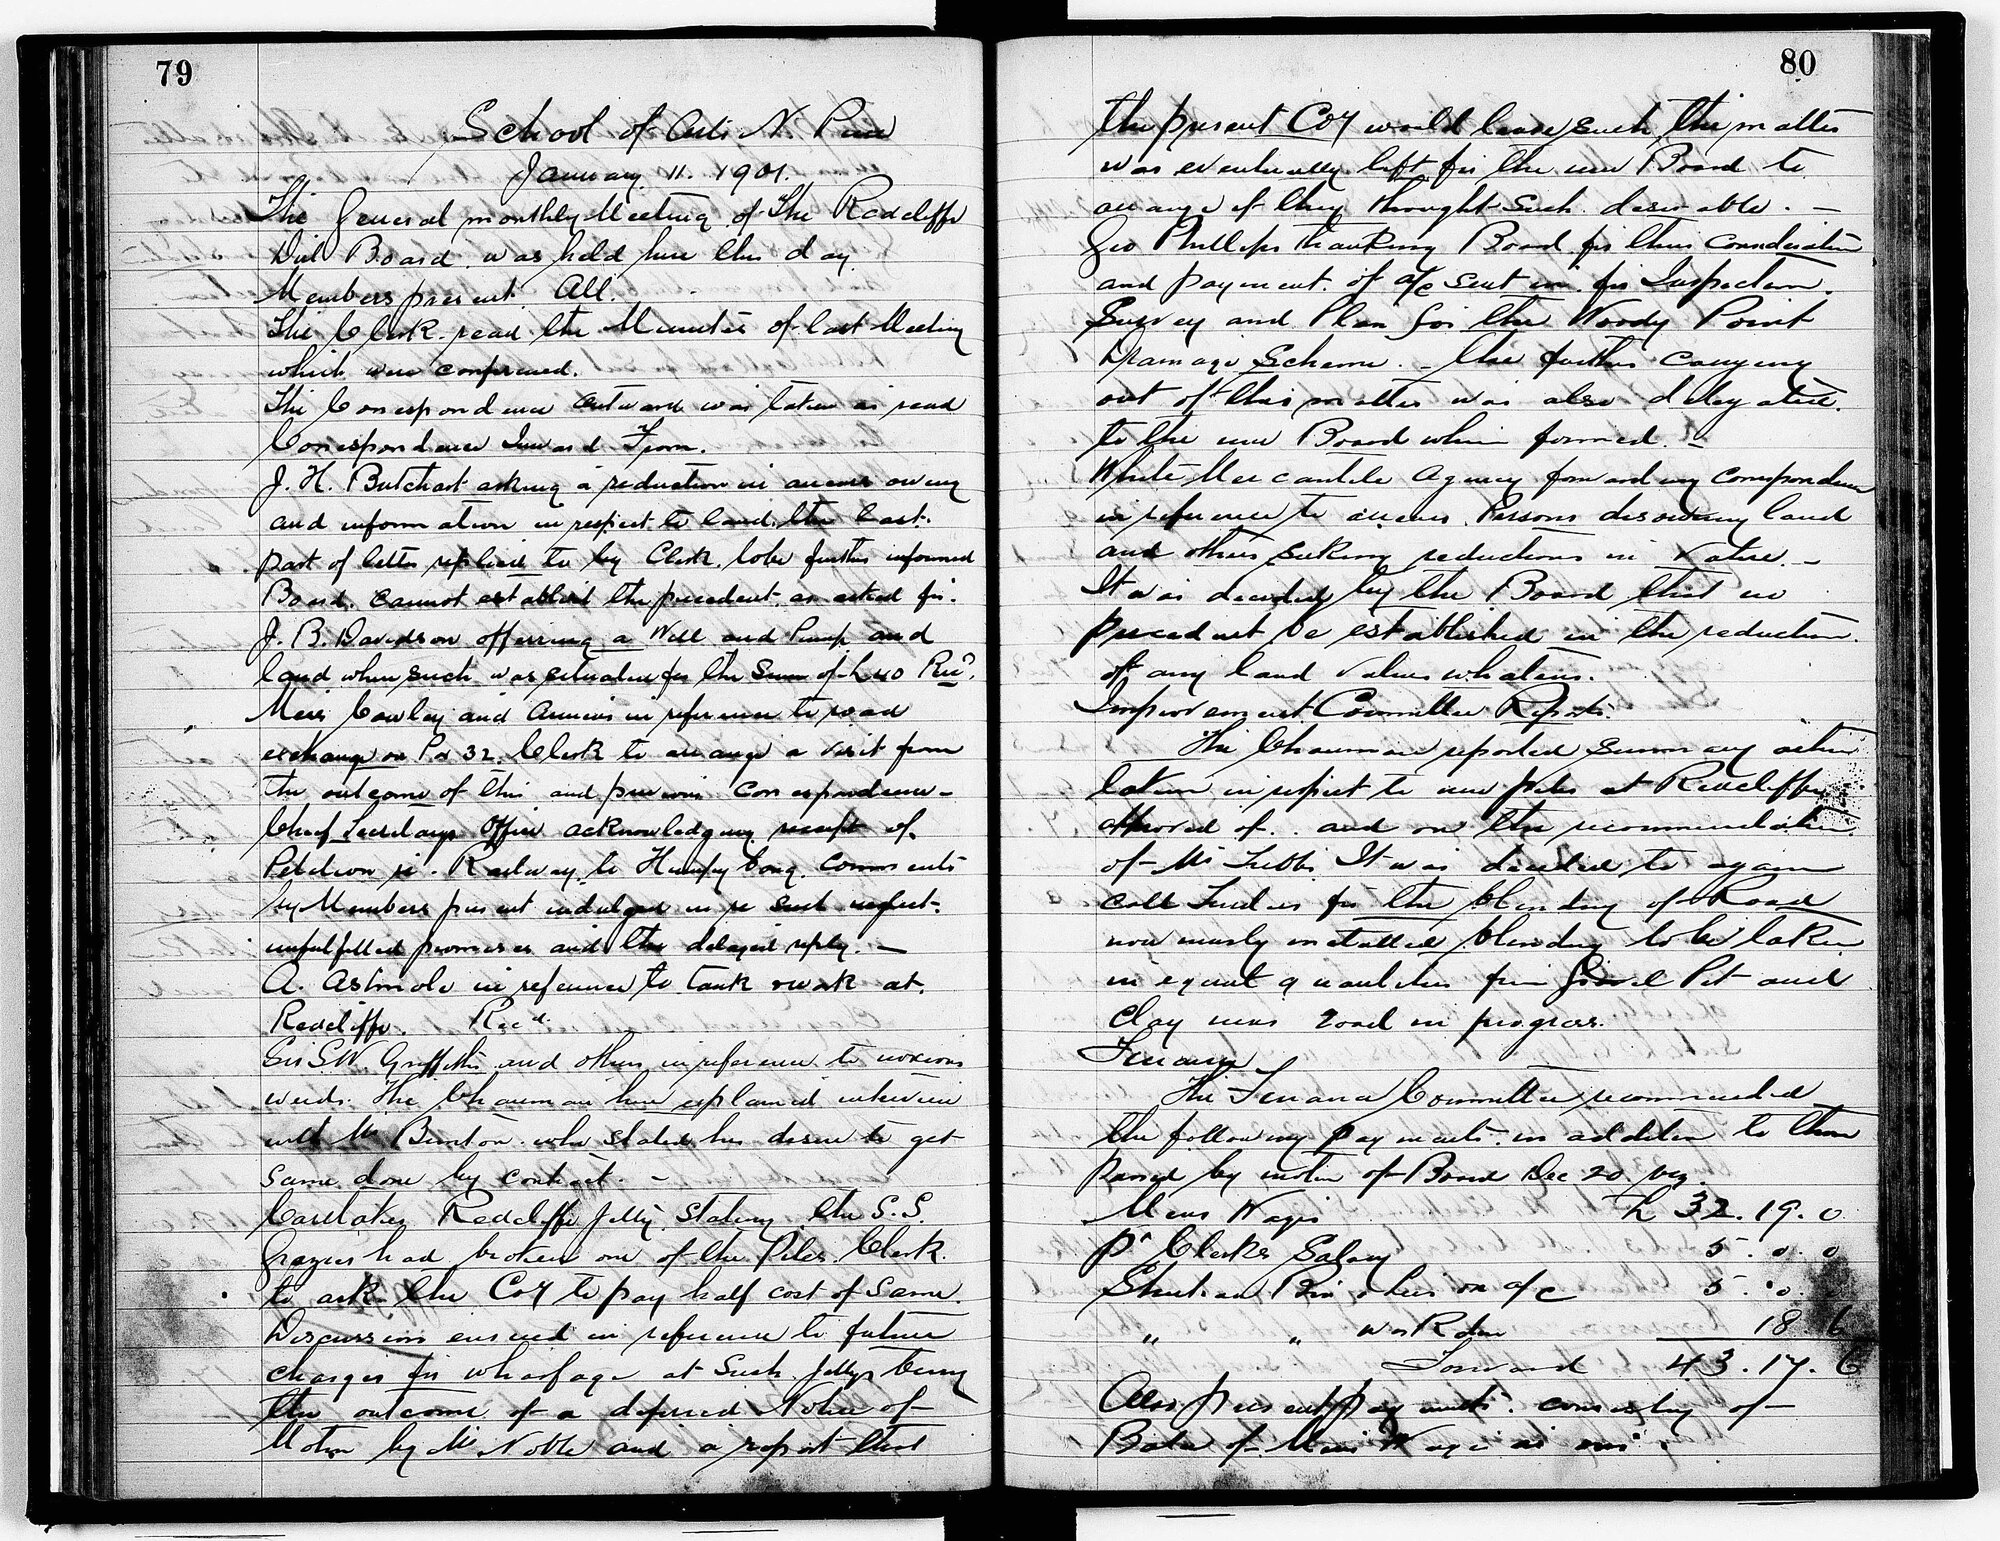 79
School of Arts N. Pine
January 11. 1901.
The General monthly Meeting of The Redcliffe
Div Board was held here this day.
Members present. All.
The Clerk read the Minutes of last Meeting
which were confirmed.
The Correspondence Outward was taken as read
Correspondence Inward From.
J. H. Butchart asking a reduction in arrears owing
and information in respect to land, the last
part of letter replied to by Clerk, to be further informed
Board cannot establish the precedent as asked for.
J. B. Davidson offering a Well and Pump and
land where such was situated for the Sum of £40 Recd.
Messrs Cowley and Annems in reference to road
exchange on Por 32. Clerk to arrange a visit from
the outcome of this and previous correspondence –
Chief Secretarys Office acknowledging receipt of
Petition re. Railway to Humpy Bong. Comments
by Members present indulged in re such neglect.
unfulfilled promises and the delayed reply. –
A. Astmole in reference to tank work at
Redcliffe. Recd.
Sir S. W. Griffith and others in reference to noxious
weeds. The Chairman here explained interview
with Mr Benton who stated his desire to get
same done by contract. –
Caretaker Redcliffe Jetty stating the S.S.
Grazier had broken one of the Piles. Clerk
to ask the Coy to pay half cost of same.
Discussion ensued in reference to future
charges for wharfage at such Jettys being
the outcome of a deferred Notice of
Motion by Mr Noble and a report that
80
the present Coy would lease such the matter
was eventually left for the new Board to
arrange if they thought such desirable. –
Geo Phillips thanking Board for their consideration
and payment of a/c sent in for Inspection
Survey and Plan for the Woody Point
Drainage Scheme. – the further carrying
out of this matter was also delegated
to the new Board when formed. –
White Mercantile Agency forwarding correspondence
in reference to arrears. Persons disowning land
and others seeking reductions in Value. –
It was decided by the Board that no
precedent be established in the reduction
of any land values whatever.
Improvement Committee Report.
The Chairman reported summary action
taken in respect to new piles at Redcliffe
approved of. and on the recommendation
of Mr Tubbs It was decided to again
call Tenders for the blinding of Road
now newly metalled blinding to be taken
in equal quantities from Gravel Pit and
Clay near road in progress.
Finance
The Finance Committee recommended
the following payments in addition to those
passed by motion of Board Dec 20. viz.
Mens Wages £ 32. 19. 0
Pr Clerks Salary 5. 0. 0
Stewart on a/c 5. 0. 0
" " 18. 6
Forward 43. 17. 6
Also present payments consisting of
Balce of Mens Wages as over.